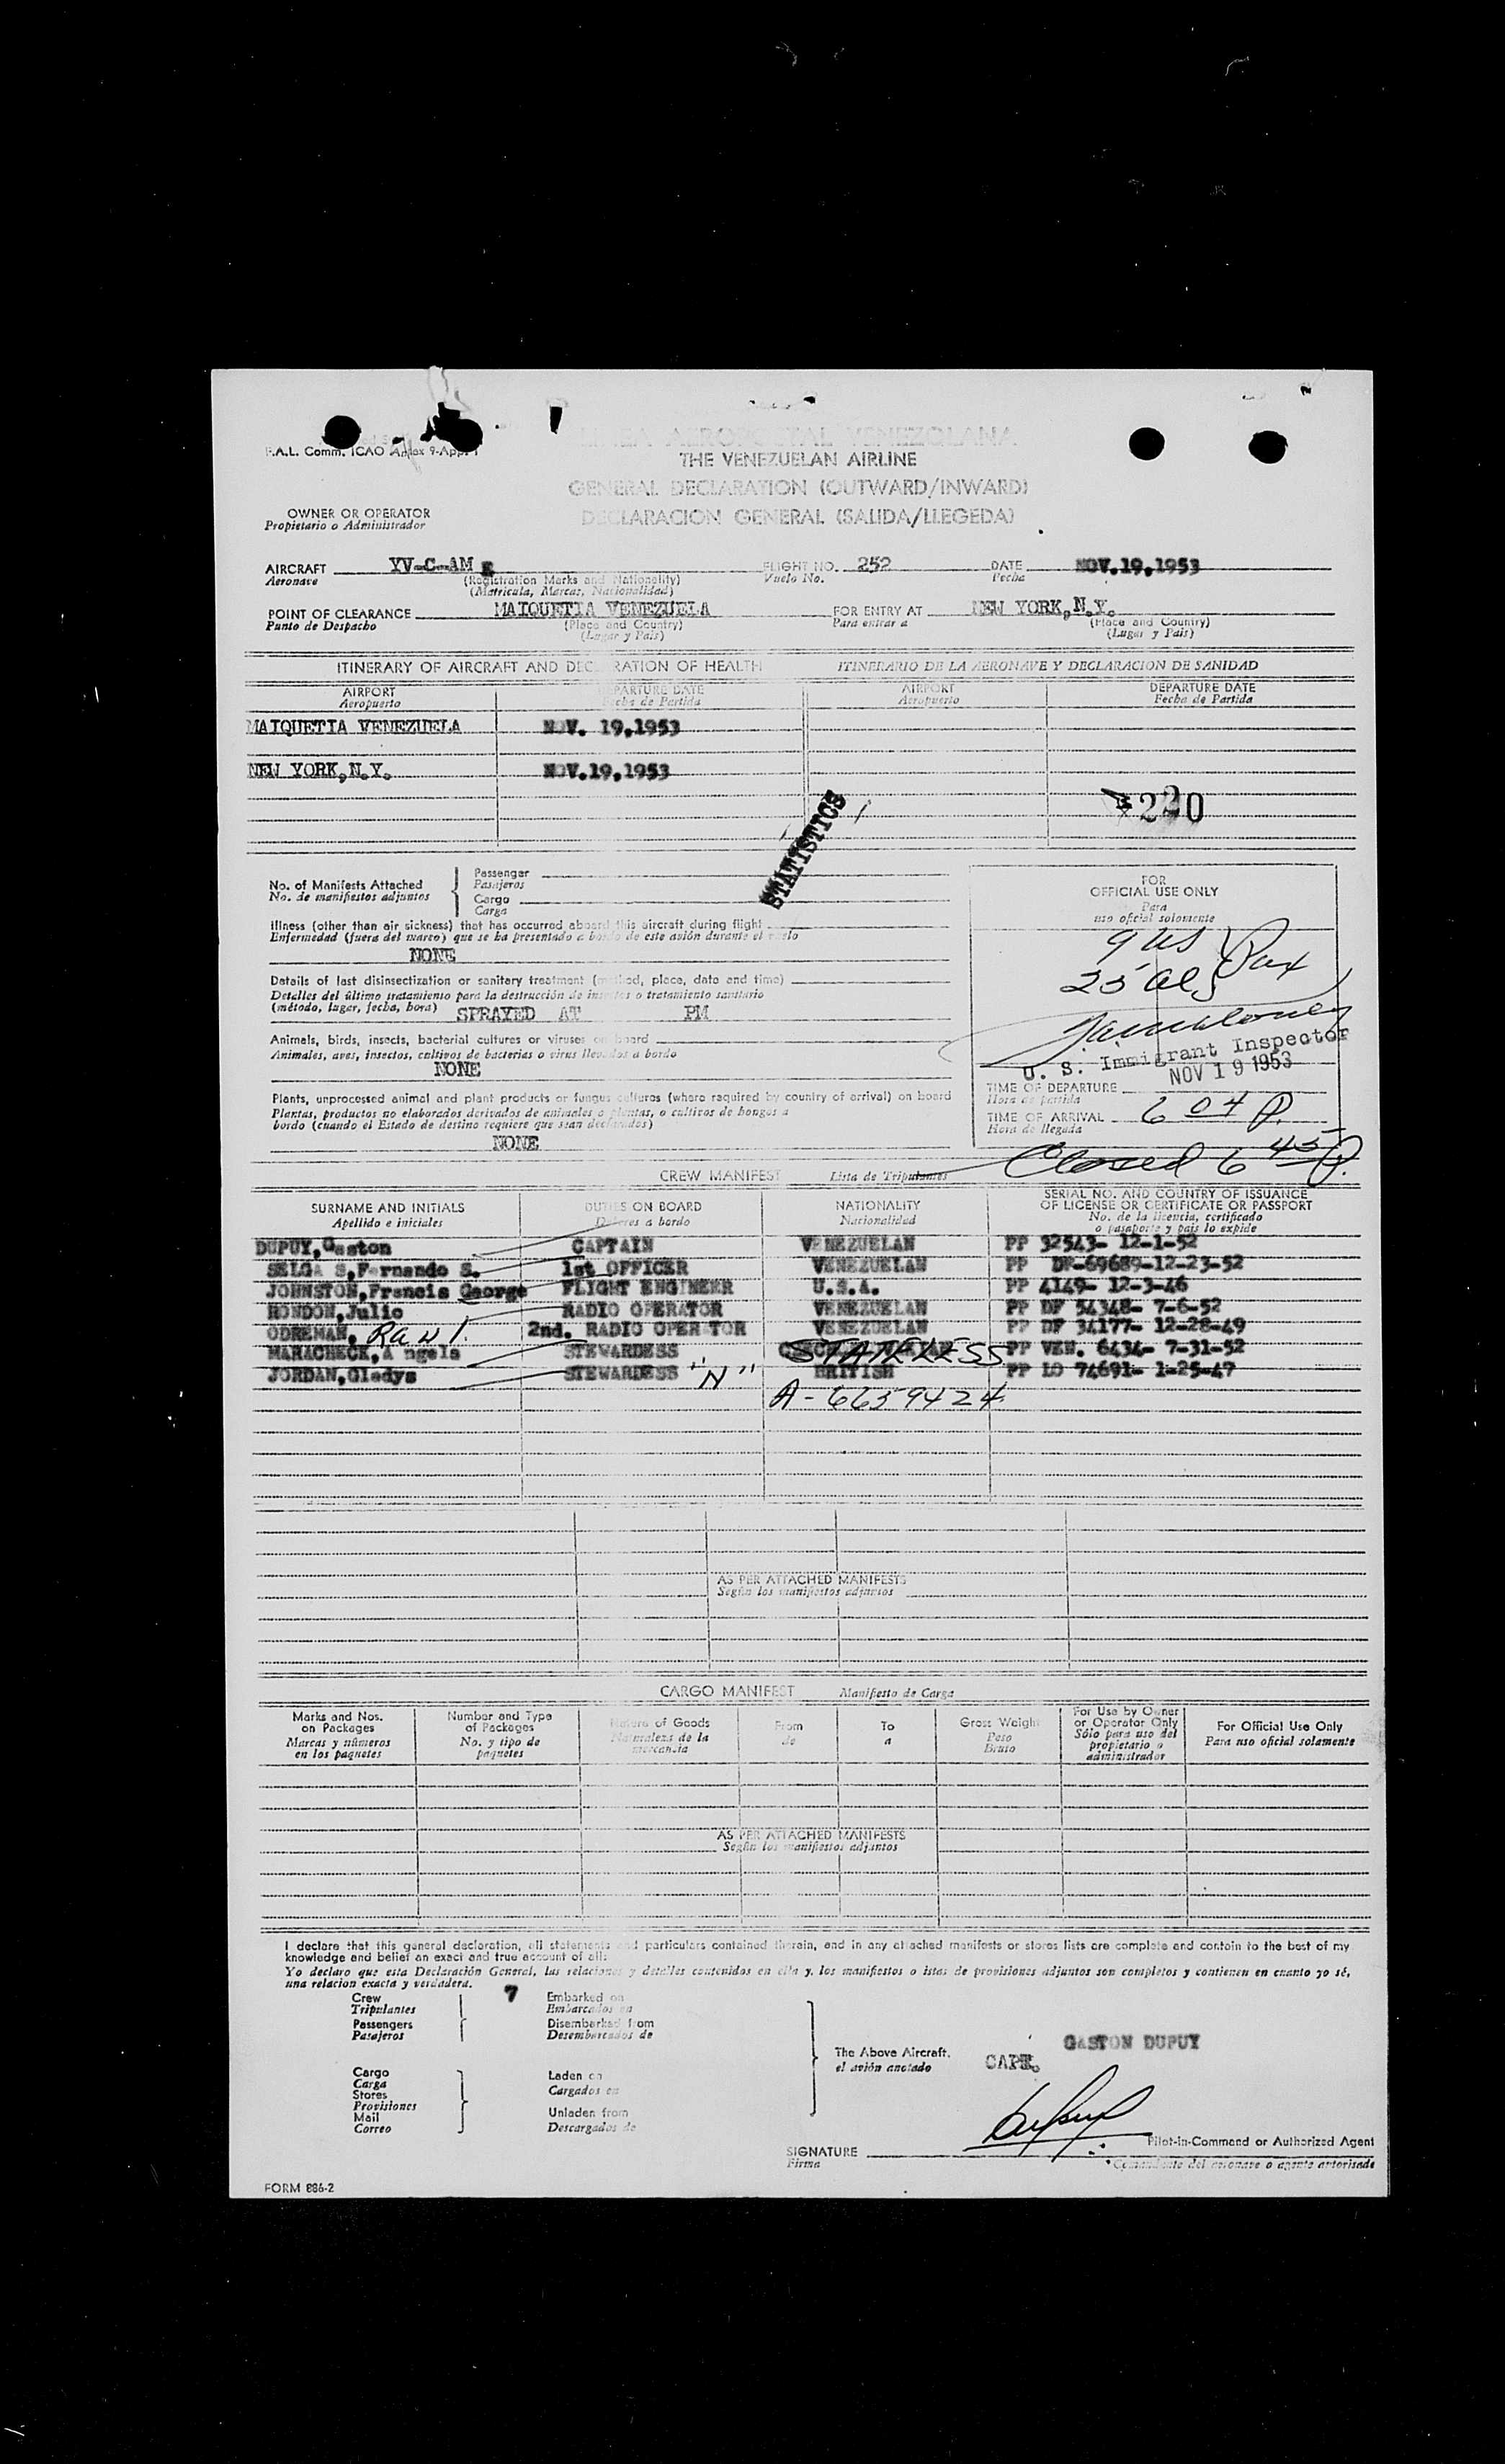 LINEA AEROPOSTAL VENEZOLANA
F.A.L. Comm. ICAO Annex 9-App. 1
THE VENEZUELAN AIRLINE
GENERAL DECLARATION (OUTWARD/INWARD)
DECLARACION GENERAL (SALIDA/LLEGEDA)
OWNER OR OPERATOR
Propietario o Administrador
AIRCRAFT YV-C-AM FLIGHT NO. 252 DATE NOV.19,1953
Aeronave (Registration Marks and Nationality) Vuelo No. Fecha
(Matrícula, Marcas, Nacionalidad)
POINT OF CLEARANCE MAIQUETIA VENEZUELA FOR ENTRY AT NEW YORK,N.Y.
Punto de Despacho (Place and Country) Para entrar a (Place and Country)
(Lugar y País) (Lugar y País)
ITINERARY OF AIRCRAFT AND DECLARATION OF HEALTH ITINERARIO DE LA AERONAVE Y DECLARACION DE SANIDAD
AIRPORT DEPARTURE DATE AIRPORT DEPARTURE DATE
Aeropuerto Fecha de Partida Aeropuerto Fecha de Partida
MAIQUETIA VENEZUELA NOV. 19,1953
NEW YORK,N.Y. NOV.19,1953
220
STATISTICS
No. of Manifests Attached Passenger
No. de manifiestos adjuntos Pasajeros
Cargo
Carga
Illness (other than air sickness) that has occurred aboard this aircraft during flight
Enfermedad (fuera del mareo) que se ha presentado a bordo de este avión durante el vuelo
NONE
Details of last disinsectization or sanitary treatment (method, place, date and time)
Detalles del último tratamiento para la destrucción de insectos o tratamiento sanitario
(método, lugar, fecha, hora) SPRAYED AT PM
Animals, birds, insects, bacterial cultures or viruses on board
Animales, aves, insectos, cultivos de bacterias o virus llevados a bordo
NONE
Plants, unprocessed animal and plant products or fungus cultures (where required by country of arrival) on board
Plantas, productos no elaborados derivados de animales o plantas, o cultivos de hongos a
bordo (cuando el Estado de destino requiere que sean declarados)
NONE
FOR
OFFICIAL USE ONLY
Para
uso oficial solamente
9 US
25 Als Pax
U. S. Immigrant Inspector
NOV 19 1953
TIME OF DEPARTURE
Hora de partida
TIME OF ARRIVAL 6 04 P.
Hora de llegada
Closed 6 45 P.
CREW MANIFEST Lista de Tripulantes
SURNAME AND INITIALS DUTIES ON BOARD NATIONALITY SERIAL NO. AND COUNTRY OF ISSUANCE
OF LICENSE OR CERTIFICATE OR PASSPORT
Apellido e iniciales Deberes a bordo Nacionalidad No. de la licencia, certificado
o pasaporte y país lo expide
DUPUY,Gaston CAPTAIN VENEZUELAN PP 32543- 12-1-52
SELGA S,Fernando S. 1st OFFICER VENEZUELAN PP DF-69689-12-23-52
JOHNSTON,Francis George FLIGHT ENGINEER U.S.A. PP 4149- 12-3-46
RONDON,Julio RADIO OPERATOR VENEZUELAN PP DF 54348- 7-6-52
ODREMAN, Raul. 2nd. RADIO OPERATOR VENEZUELAN PP DF 34177- 12-28-49
MARACHECK,A ngela STEWARDESS STATELESS PP VEN. 6434- 7-31-52
JORDAN,Gladys STEWARDESS "N" BRITISH PP LO 74691- 1-25-47
A-6659424
AS PER ATTACHED MANIFESTS
Según los manifiestos adjuntos
CARGO MANIFEST Manifiesto de Carga
Marks and Nos. on Packages Number and Type of Packages Nature of Goods From To Gross Weight For Use by Owner or Operator Only For Official Use Only
Marcas y números en los paquetes No. y tipo de paquetes Naturaleza de la mercancía de a Peso Bruto Sólo para uso del propietario o administrador Para uso oficial solamente
AS PER ATTACHED MANIFESTS
Según los manifiestos adjuntos
I declare that this general declaration, all statements and particulars contained therein, and in any attached manifests or stores lists are complete and contain to the best of my
knowledge and belief an exact and true account of all:
Yo declaro que esta Declaración General, las relaciones y detalles contenidos en ella y, los manifiestos o istas de provisiones adjuntos son completos y contienen en cuanto yo sé,
una relacion exacta y verdadera.
Crew 7 Embarked on
Tripulantes Embarcados en
Passengers Disembarked from
Pasajeros Desembarcados de
The Above Aircraft.
el avión anotado
GASTON DUPUY
CAPT.
Cargo Laden on
Carga Cargados en
Stores
Provisiones
Mail Unladen from
Correo Descargados de
Dupuy
Pilot-in-Command or Authorized Agent
SIGNATURE
Firma Comandante del aeronave o agente autorisado
FORM 886-2